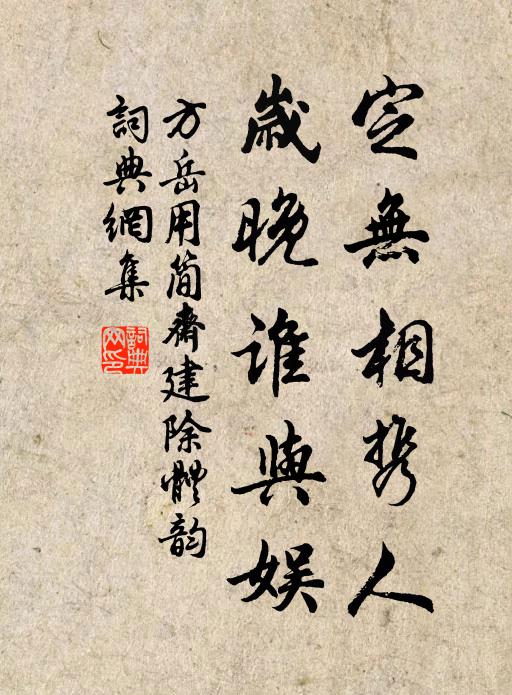 定無相携人
歲晚誰與娱
方岳用简齋建除體韵
詞典網集
詞典網印